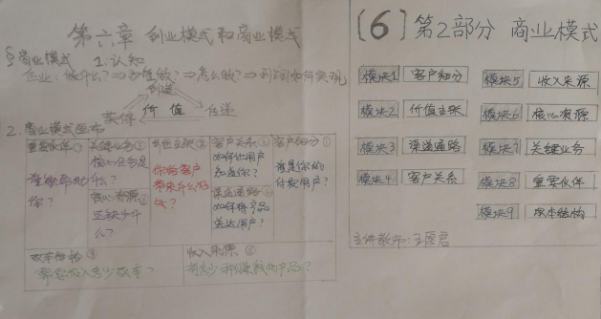 第六章 创业模式和商业模式
商业模式 1.认知
企业:做什么?⇒为谁做?⇒怎么做?⇒利润如何实现
创造
获得 价值 传递
2.商业模式画布
重要伙伴
谁能帮助你?
关键业务
核心业务是什么?
核心资源
还缺少什么?
价值主张
你给客户带来什么
客户关系
渠道通路
如何将产品送达用户?
客户细分
谁是你的付款用户?
成本结构
需要投入多少成本?
收入来源
(6)第2部分 商业模式
模块1 客户细分
模块2 价值主张
模块3 渠道通路
模块4 客户关系
模块5 收入来源
模块6 核心资源
模块7 关键业务
模块8 重要伙伴
模块9 成本结构
主讲教师: